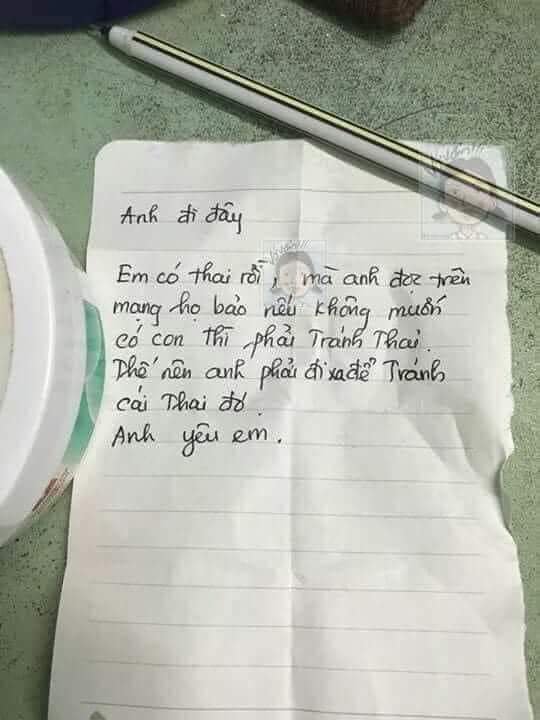 Anh đi đây
Em có thai rồi, mà anh đọc trên
mạng họ bảo nếu không muốn
có con thì phải Tránh Thai.
Thế nên anh phải đi xa để Tránh
cái Thai đó.
Anh yêu em.